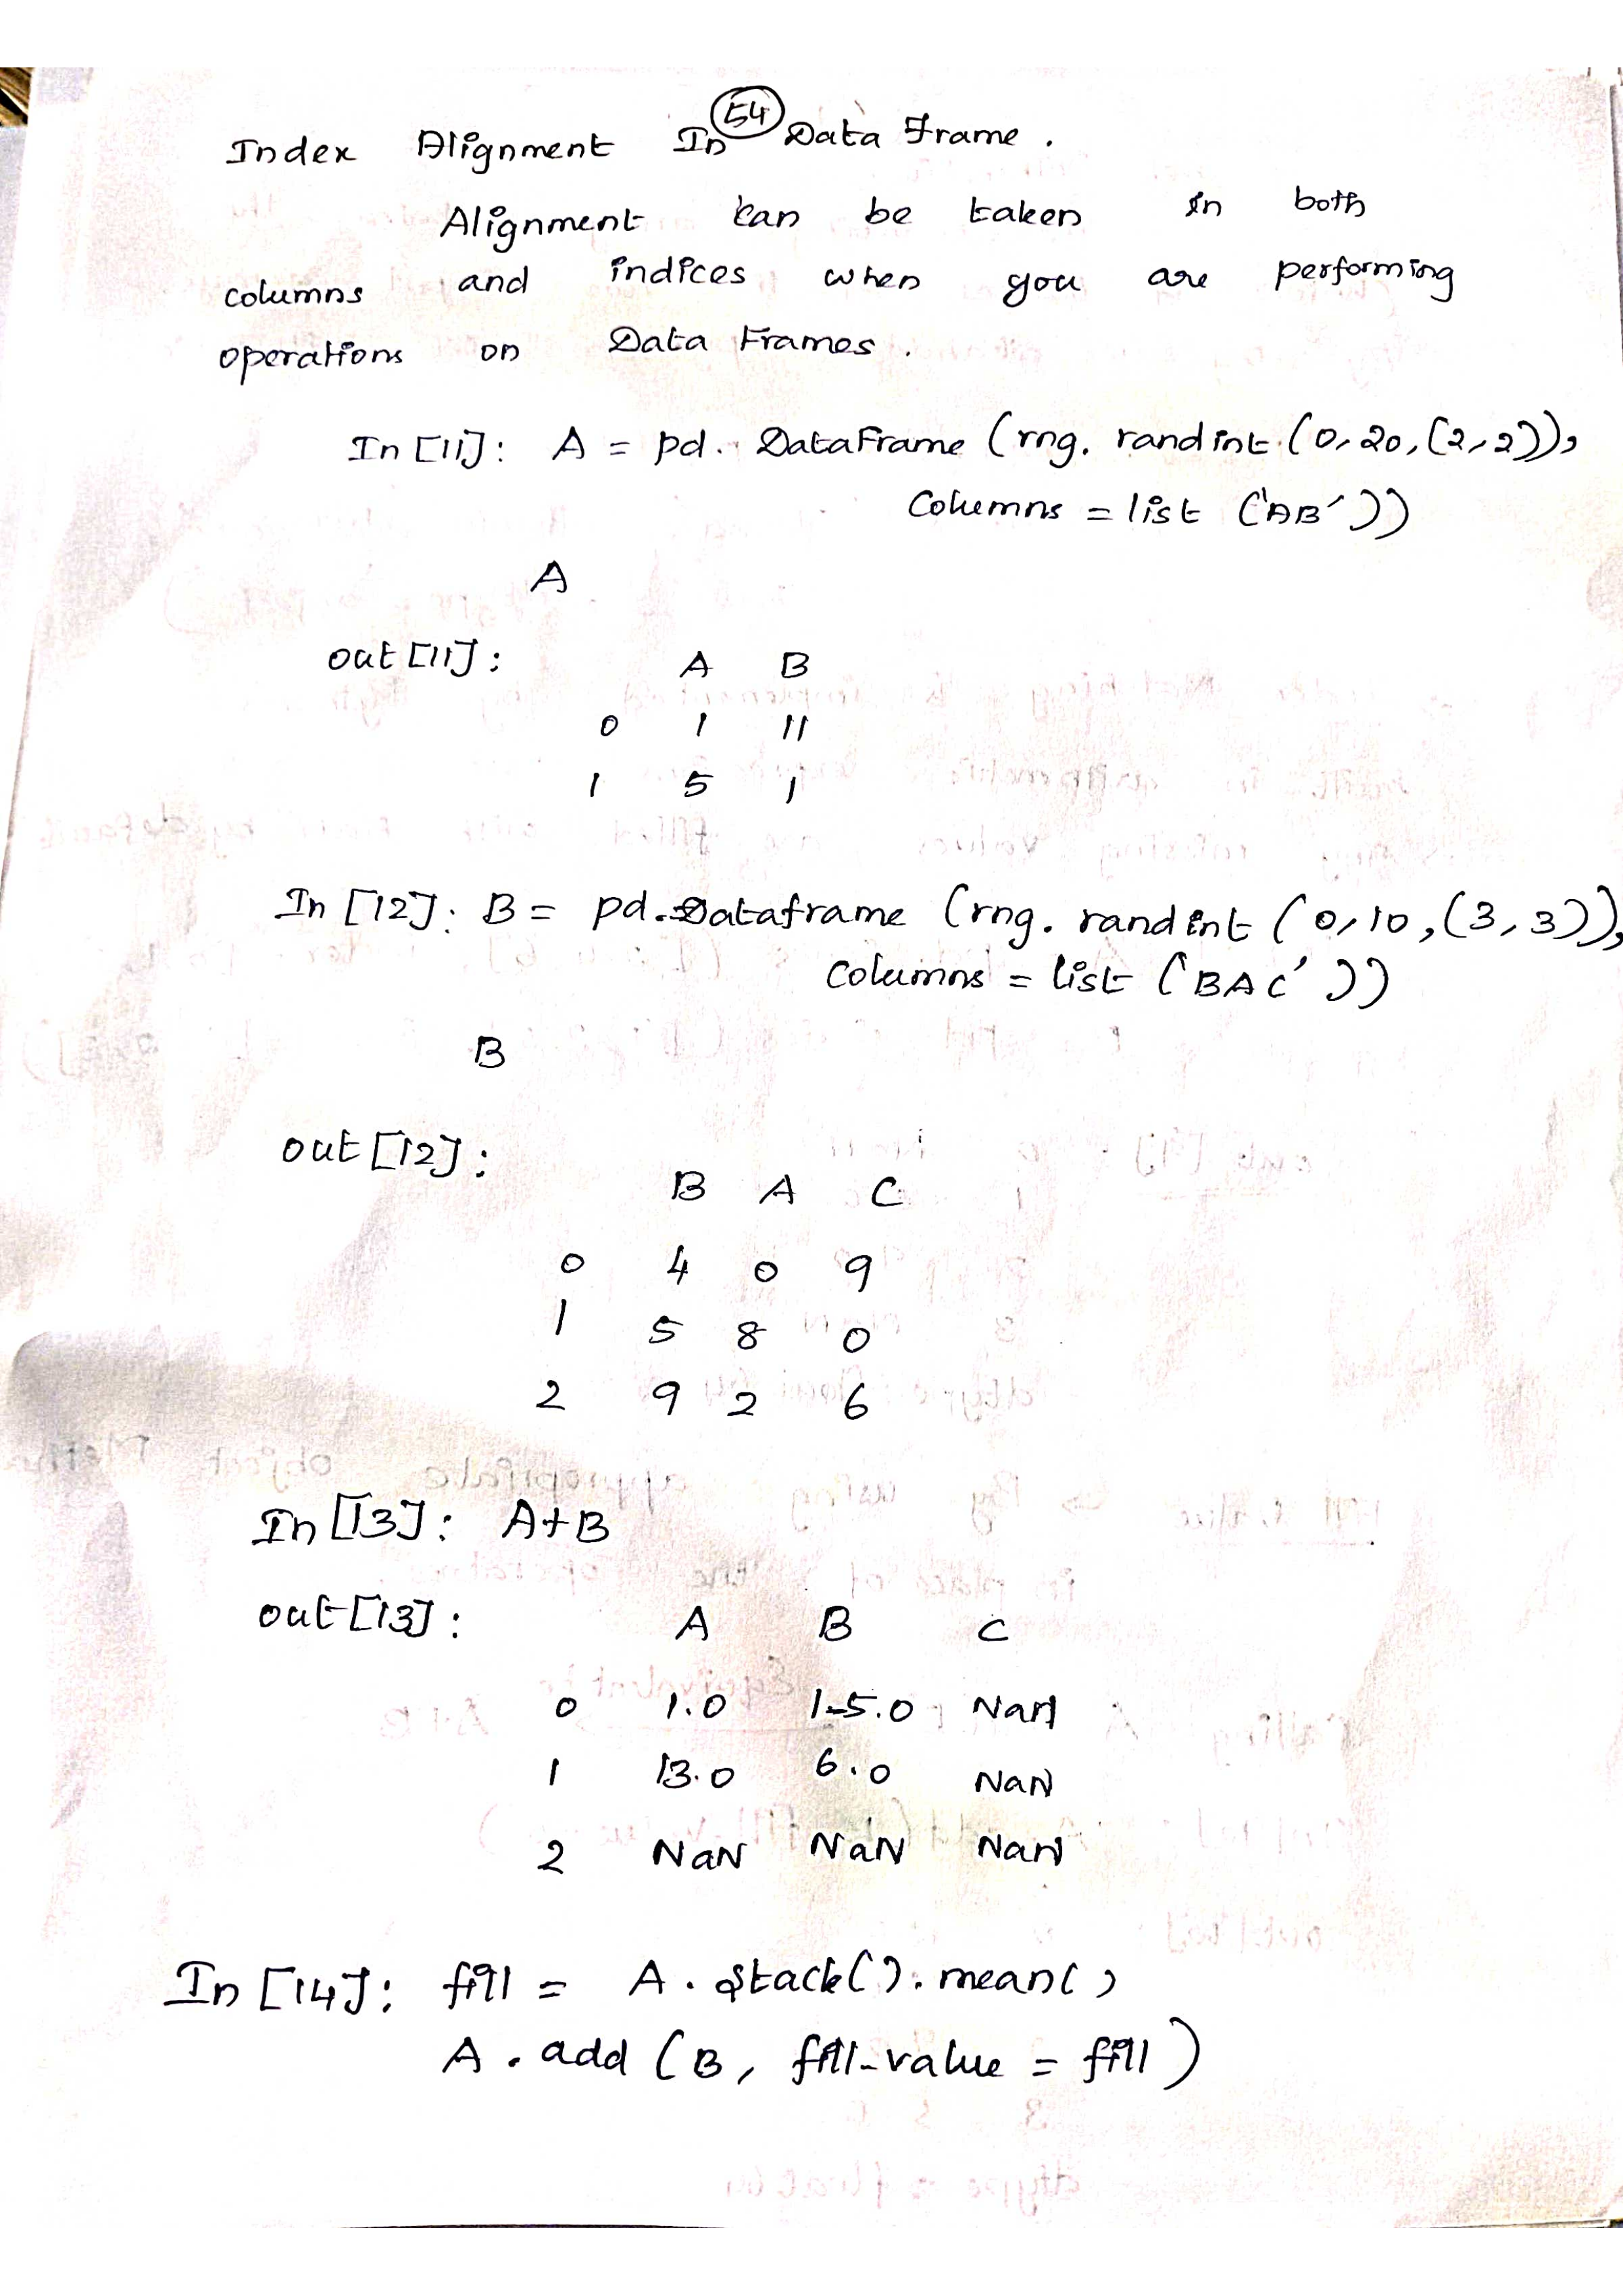 54
Index Alignment In Data Frame.
Alignment can be taken in both
columns and indices when you are performing
operations on Data Frames.
In [11]: A = pd. DataFrame (rng. randint (0, 20, (2, 2)),
Columns = list ('AB'))
A
out [11]:
A B
0 1 11
1 5 1
In [12]: B = pd. Dataframe (rng. randint (0, 10, (3, 3)),
Columns = list ('BAC'))
B
out [12]:
B A C
0 4 0 9
1 5 8 0
2 9 2 6
In [13]: A+B
out [13]: A B C
0 1.0 15.0 NaN
1 13.0 6.0 NaN
2 NaN NaN NaN
In [14]: fill = A. stack(). mean()
A. add (B, fill-value = fill)